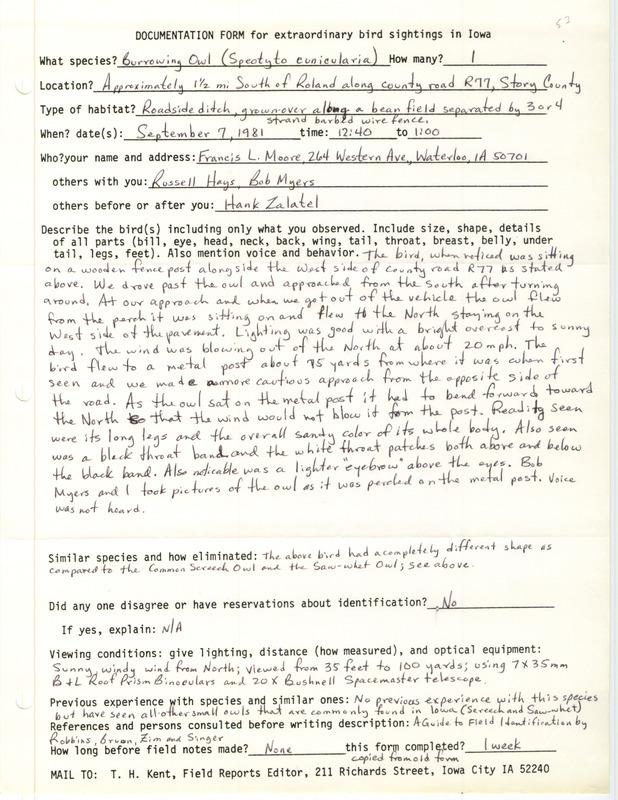 53
DOCUMENTATION FORM for extraordinary bird sightings in Iowa
What species? Burrowing Owl (Speotyto cunicularia) How many? 1
Location? Approximately 1½ mi South of Roland along county road R77, Story County
Type of habitat? Roadside ditch, grown over along a bean field separated by 3 or 4
strand barbed wire fence.
When? date(s): September 7, 1981 time: 12:40 to 1:00
Who? your name and address: Francis L. Moore, 264 Western Ave, Waterloo, IA 50701
others with you: Russell Hays, Bob Myers
others before or after you: Hank Zalatel
Describe the bird(s) including only what you observed. Include size, shape, details
of all parts (bill, eye, head, neck, back, wing, tail, throat, breast, belly, under
tail, legs, feet). Also mention voice and behavior. The bird, when noticed was sitting
on a wooden fence post alongside the West side of county road R77 as stated
above. We drove past the owl and approached from the South after turning
around. At our approach and when we got out of the vehicle the owl flew
from the perch it was sitting on and flew to the North staying on the
West side of the pavement. Lighting was good with a bright overcost to sunny
day. The wind was blowing out of the North at about 20 mph. The
bird flew to a metal post about 75 yards from where it was when first
seen and we made a more cautious approach from the opposite side of
the road. As the owl sat on the metal post it had to bend forward toward
the North so that the wind would not blow it from the post. Readily seen
were its long legs and the overall sandy color of its whole body. Also seen
was a black throat band and the white throat patches both above and below
the black band. Also noticable was a lighter "eyebrow" above the eyes. Bob
Myers and I took pictures of the owl as it was perched on the metal post. Voice
was not heard.
Similar species and how eliminated: The above bird had a completely different shape as
compared to the Common Screech Owl and the Saw-whet Owl; see above.
Did any one disagree or have reservations about identification? No
If yes, explain: N/A
Viewing conditions: give lighting, distance (how measured), and optical equipment:
Sunny, windy wind from North; viewed from 35 feet to 100 yards; using 7X35mm
B+L Roof Prism Binoculars and 20X Bushnell Spacemaster telescope.
Previous experience with species and similar ones: No previous experience with this species
but have seen all other small owls that are commonly found in Iowa (Screech and Saw-whet)
References and persons consulted before writing description: A Guide to Field Identification by
Robbins, Bruun, Zim and Singer
How long before field notes made? None this form completed? 1 week
copied from old form
MAIL TO: T. H. Kent, Field Reports Editor, 211 Richards Street, Iowa City IA 52240